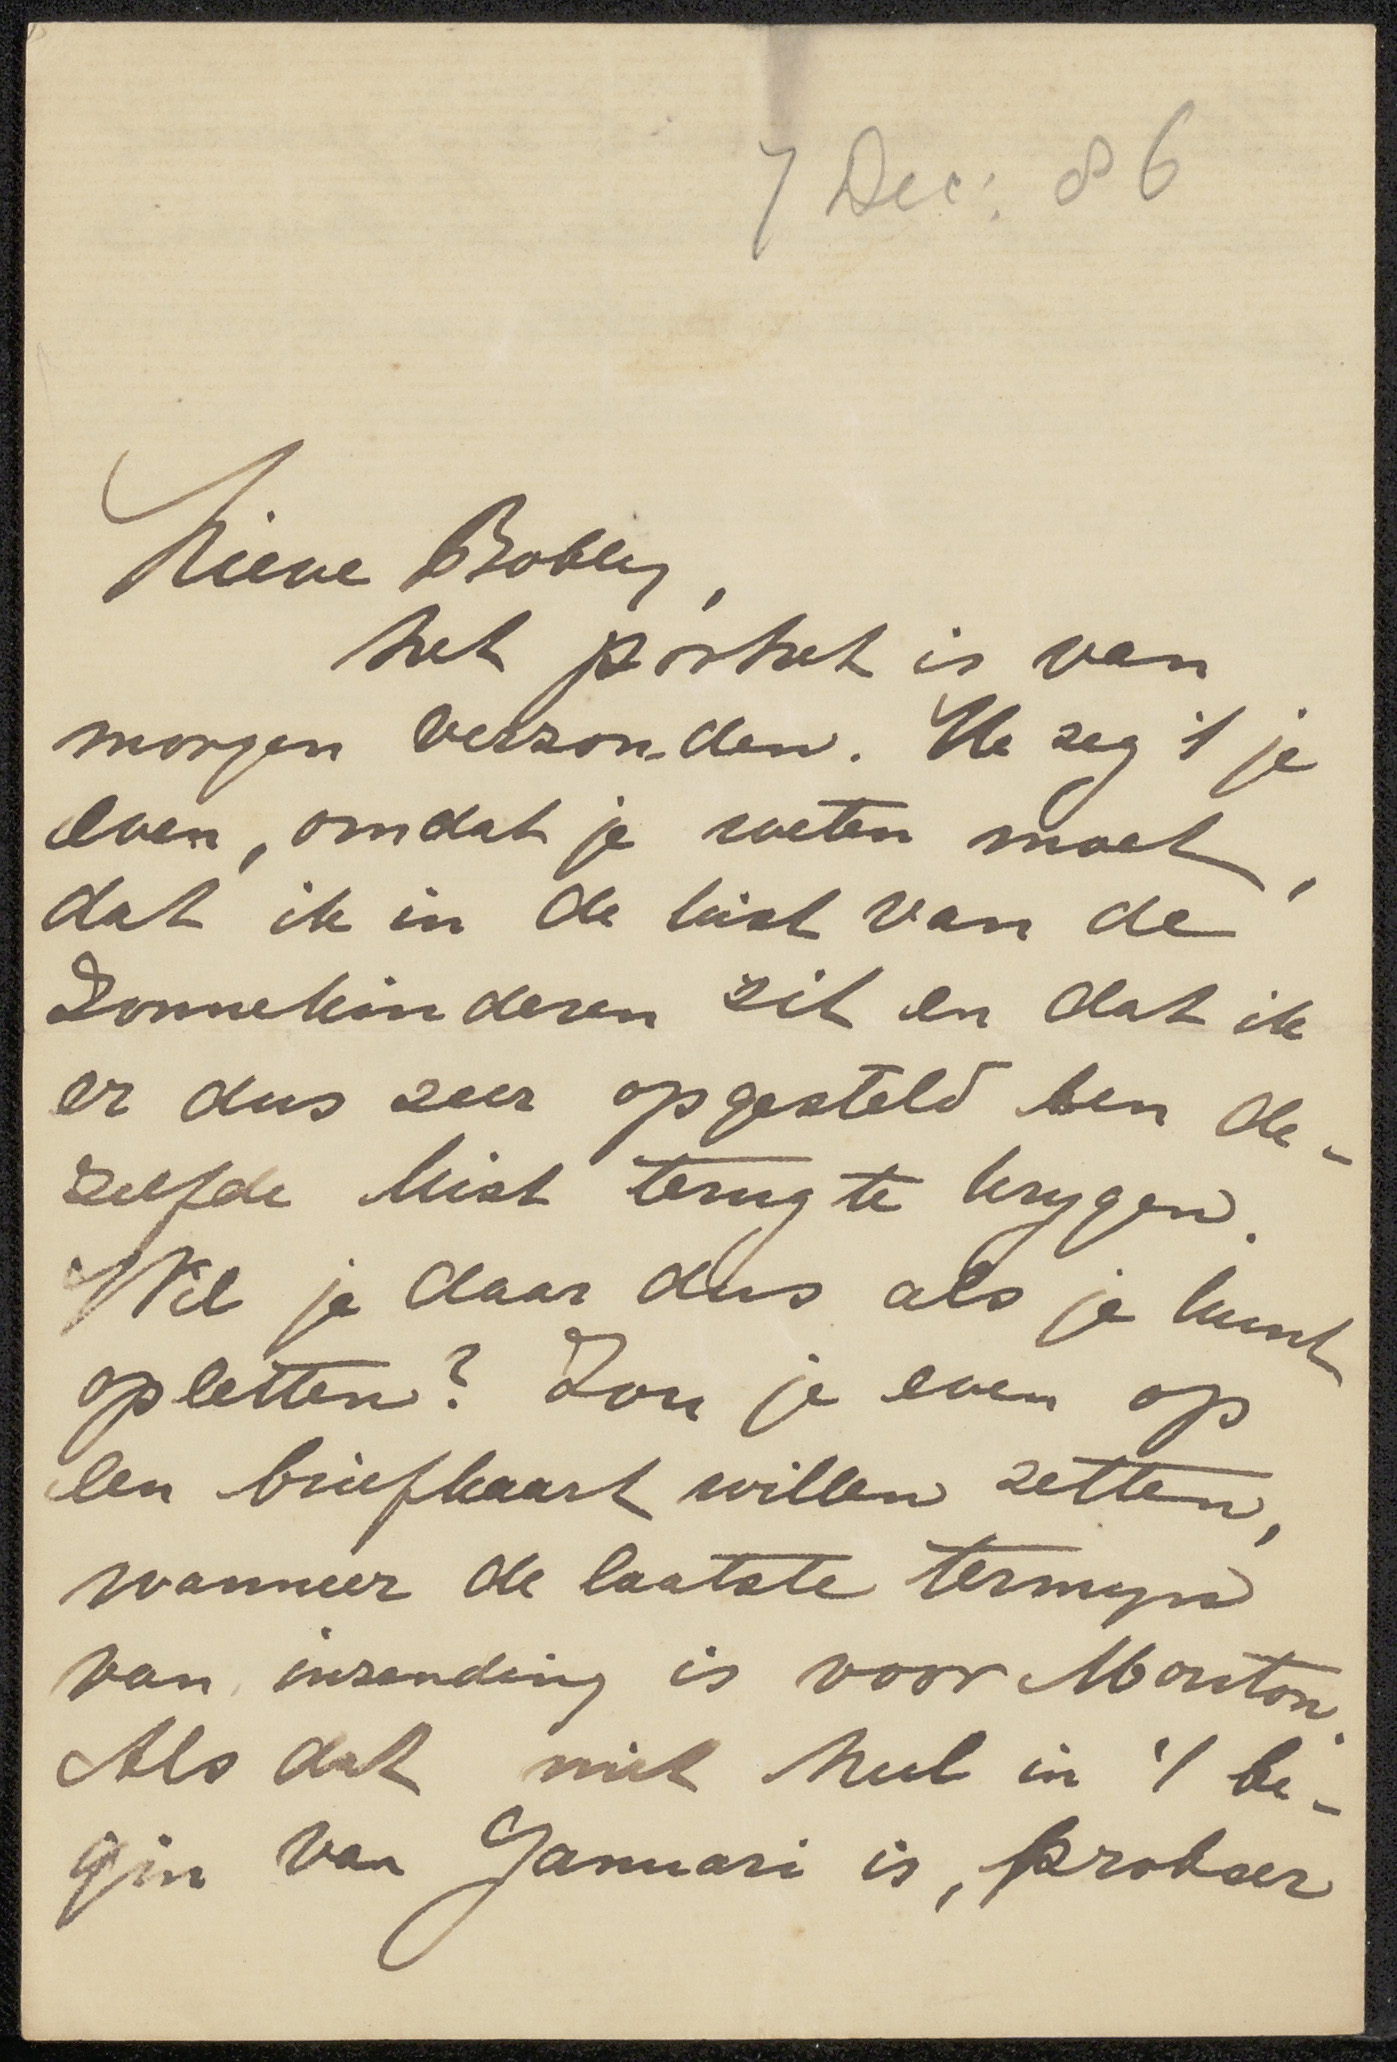 7 Dec: 86
Lieve Bobby,
het portret is van
morgen verzonden. Ik zeg 't je
even, omdat je weten moet,
dat ik in de kist van de
Zonnekinderen zit en dat ik
er dus zeer opgesteld ben de-
zelfde kist terug te krygen.
Wil je daar dus als je kunt
opletten? Zou je even op
een briefkaart willen zetten,
wanneer de laatste termyn
van inzending is voor Mouton.
Als dat niet heel in 't be-
gin van Januari is, probeer